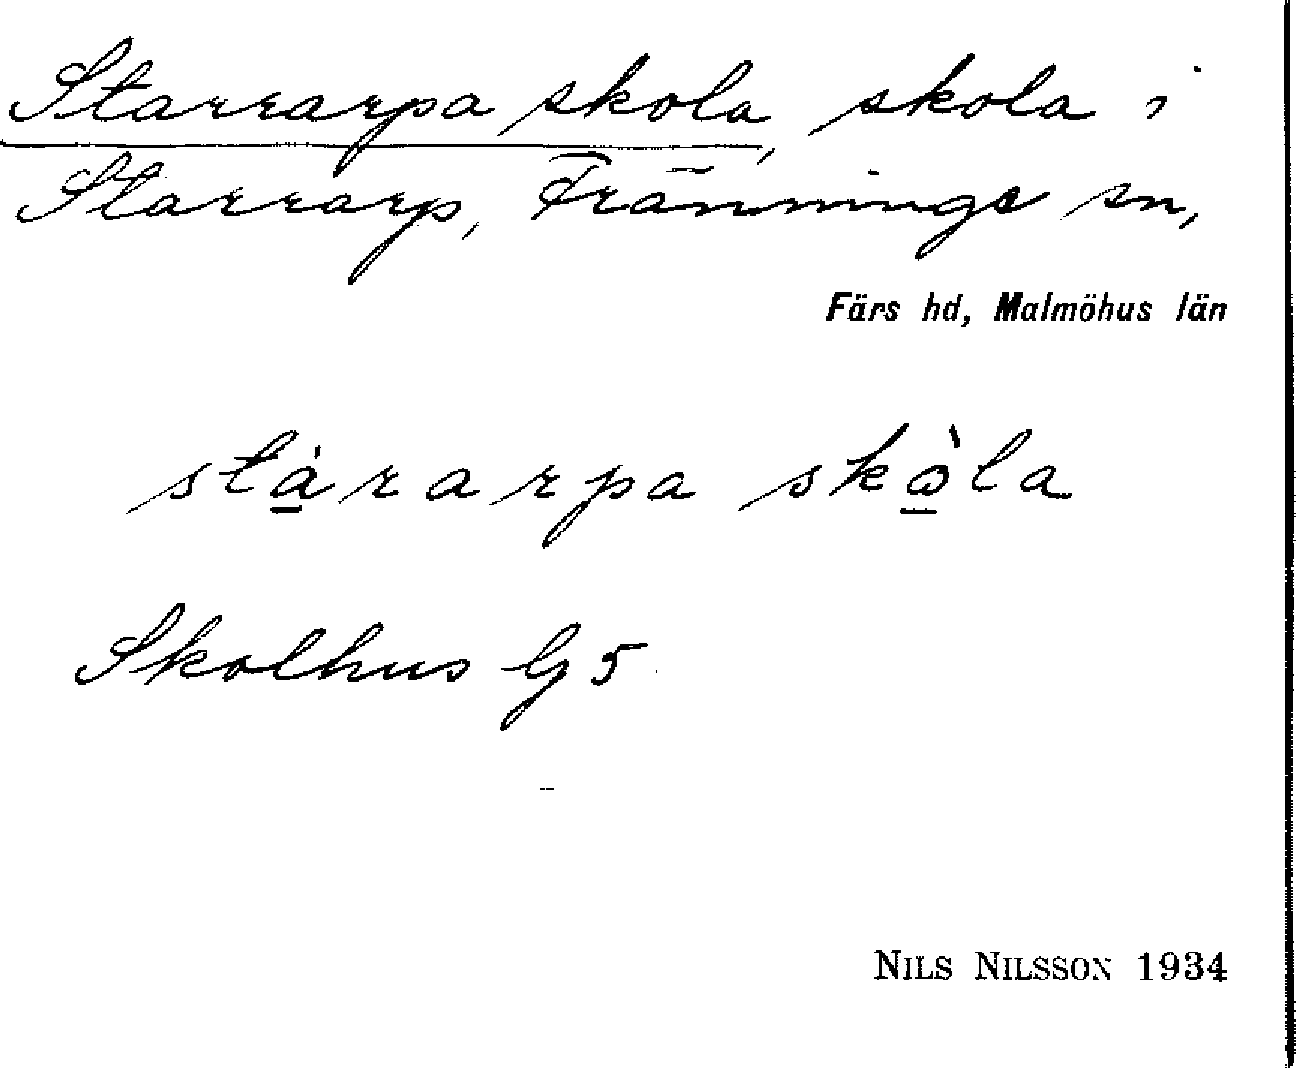 Starrarpa skola, skola i
Starrarp, Fränninge sn,
Färs hd, Malmöhus län
stàrarpa skòla
Skolhus G 5
NILS NILSSON 1934